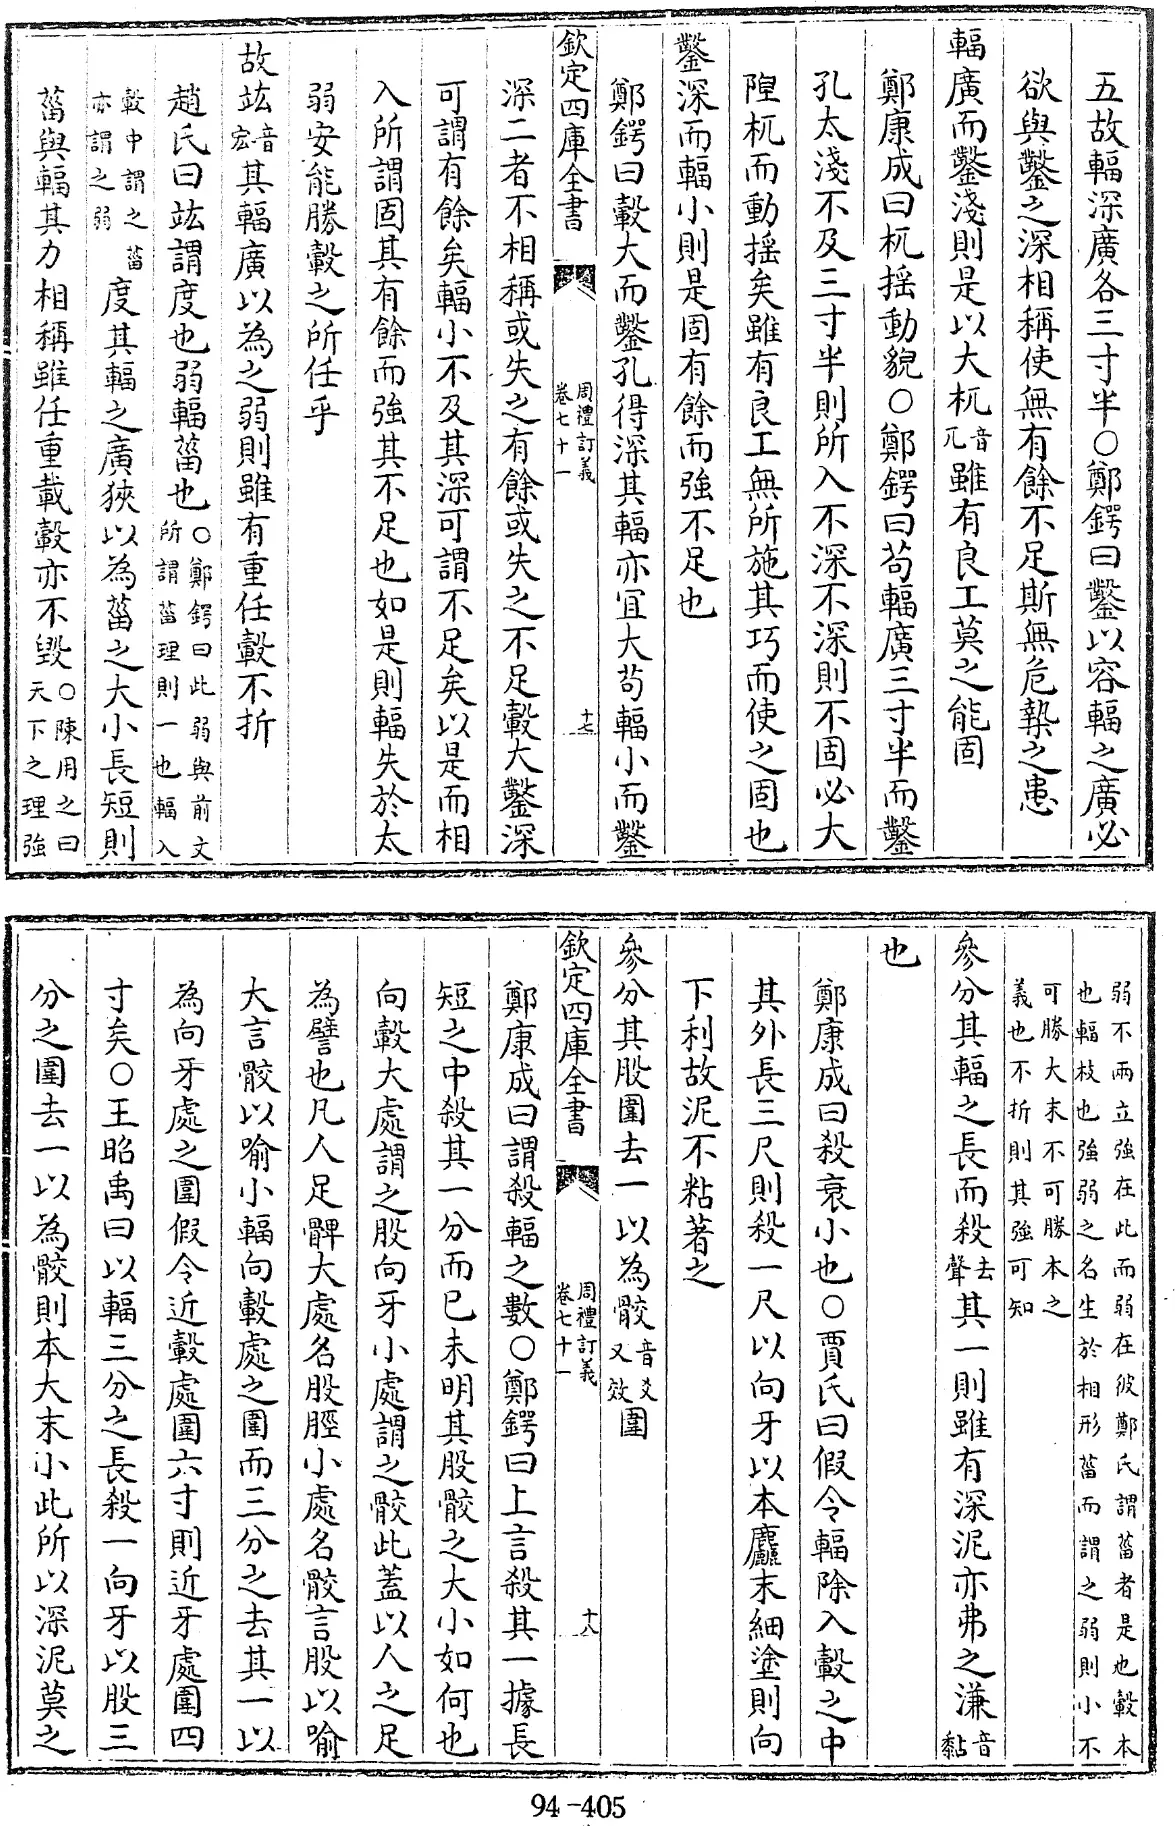 五故輻深廣各三寸半○鄭鍔曰鑿以容輻之廣必
欲與鑿之深相稱使無有餘不足斯無危槷之患
輻廣而鑿淺則是以大杌音兀雖有良工莫之能固
鄭康成曰杌搖動貌○鄭鍔曰苟輻廣三寸半而鑿
孔太淺不及三寸半則所入不深不深則不固必大
隉杌而動搖矣雖有良工無所施其巧而使之固也
鑿深而輻小則是固有餘而強不足也
鄭鍔曰轂大而鑿孔得深其輻亦宜大苟輻小而鑿
欽定四庫全書
周禮訂義
卷七十一
十七
深二者不相稱或失之有餘或失之不足轂大鑿深
可謂有餘矣輻小不及其深可謂不足矣以是而相
入所謂固其有餘而強其不足也如是則輻失於太
弱安能勝轂之所任乎
故竑音宏其輻廣以為之弱則雖有重任轂不折
趙氏曰竑謂度也弱輻菑也○鄭鍔曰此弱與前文
所謂菑理則一也輻入
轂中謂之菑
亦謂之弱
度其輻之廣狹以為菑之大小長短則
菑與輻其力相稱雖任重載轂亦不毀○陳用之曰
天下之理強
弱不兩立強在此而弱在彼鄭氏謂菑者是也轂本
也輻枝也強弱之名生於相形菑而謂之弱則小不
可勝大末不可勝本之
義也不折則其強可知
參分其輻之長而殺去聲其一則雖有深泥亦弗之溓音黏
也
鄭康成曰殺衰小也○賈氏曰假令輻除入轂之中
其外長三尺則殺一尺以向牙以本麤末細塗則向
下利故泥不粘著之
參分其股圍去一以為骹音爻又效圍
欽定四庫全書
周禮訂義
卷七十一
十八
鄭康成曰謂殺輻之數○鄭鍔曰上言殺其一據長
短之中殺其一分而已未明其股骹之大小如何也
向轂大處謂之股向牙小處謂之骹此蓋以人之足
為譬也凡人足髀大處名股脛小處名骹言股以喻
大言骹以喻小輻向轂處之圍而三分之去其一以
為向牙處之圍假令近轂處圍六寸則近牙處圍四
寸矣○王昭禹曰以輻三分之長殺一向牙以股三
分之圍去一以為骹則本大末小此所以深泥莫之
94-405